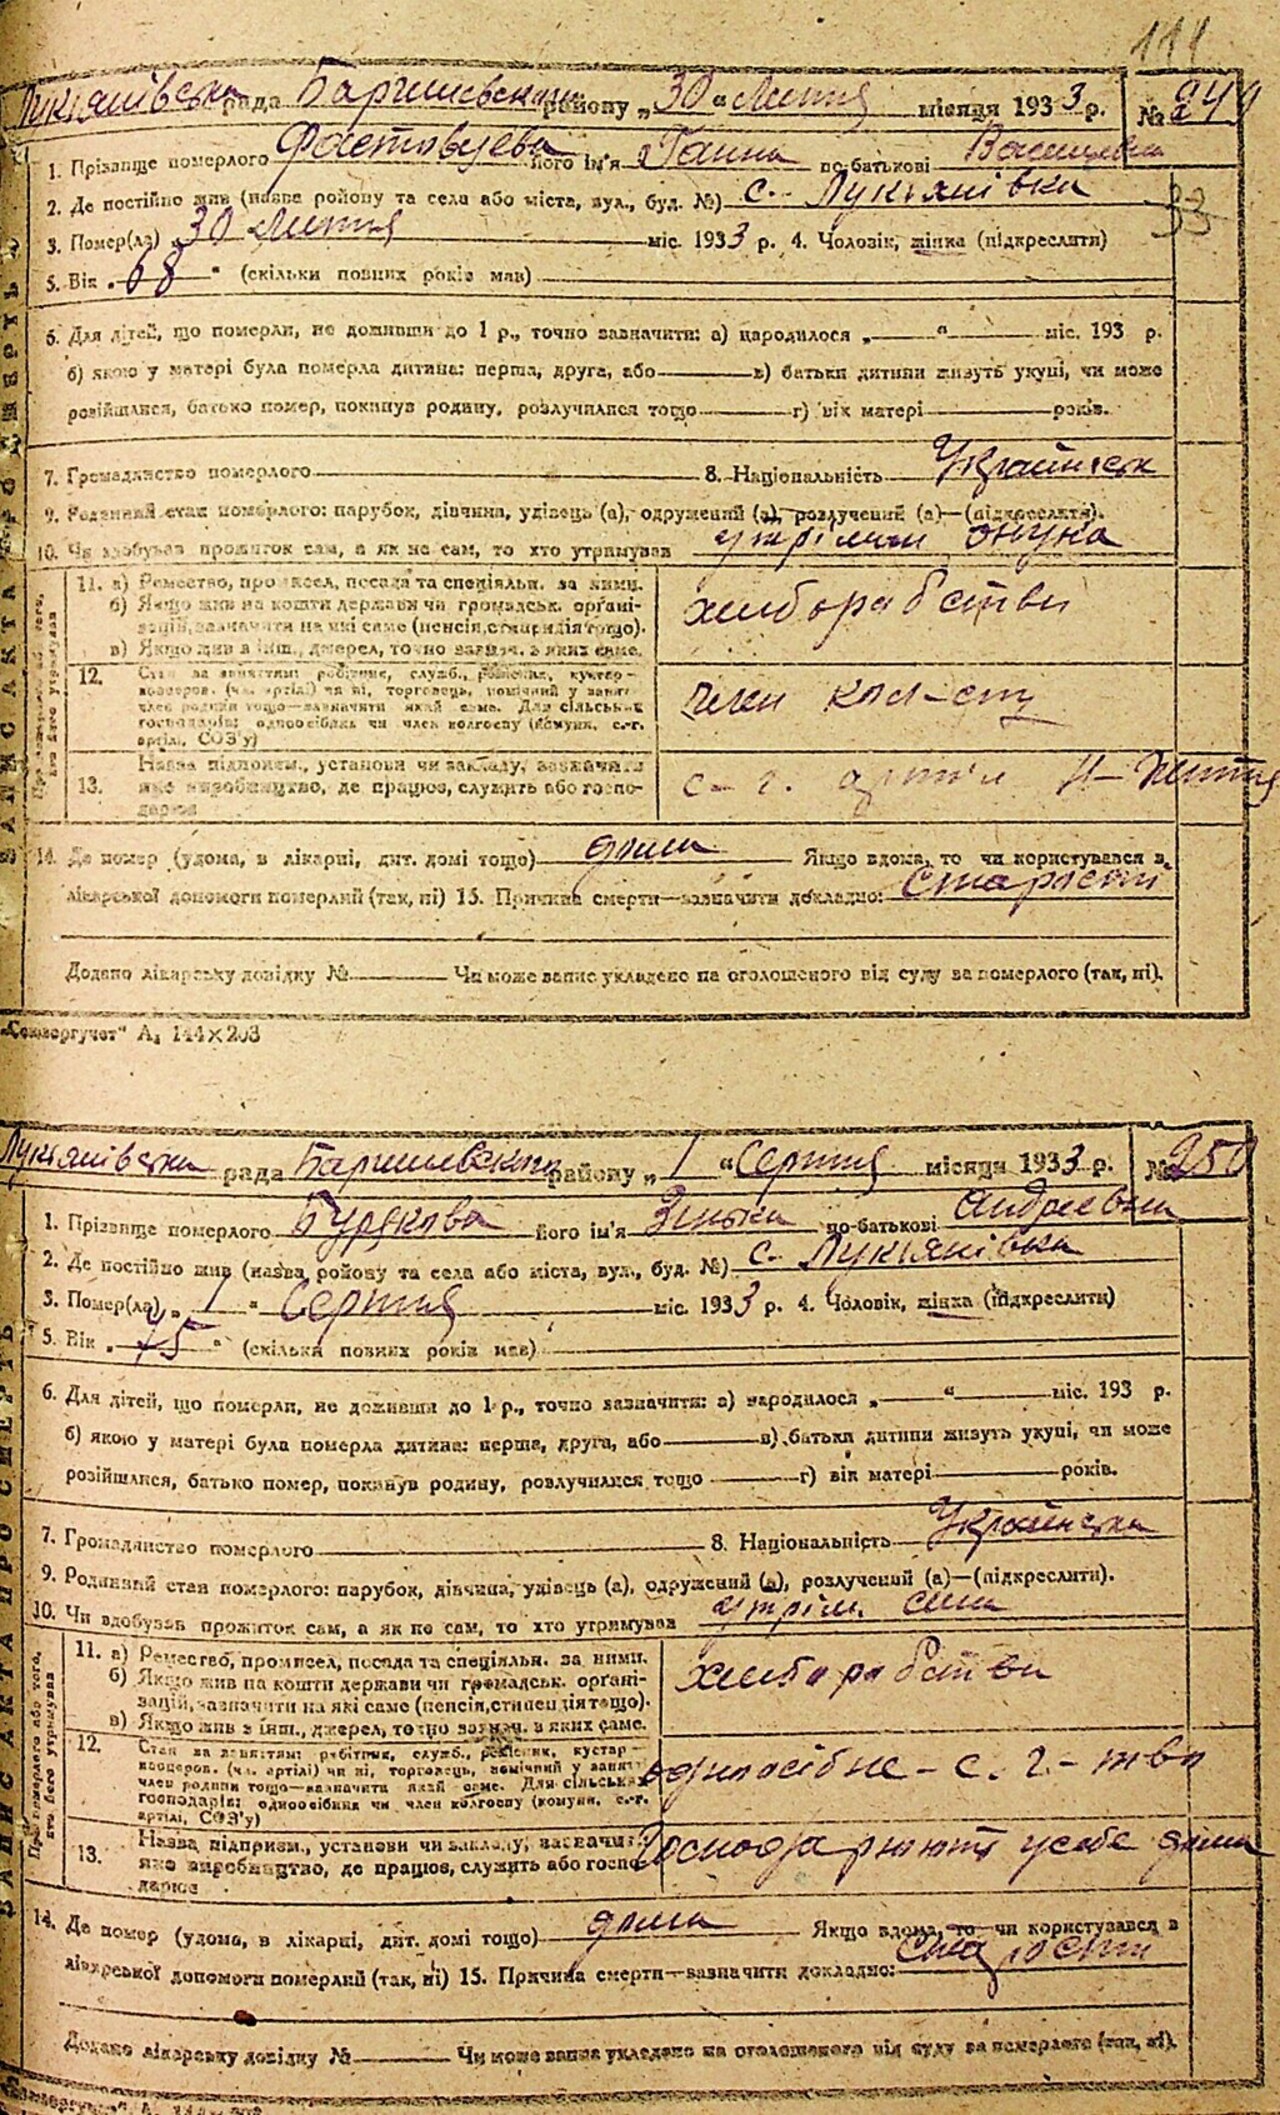 111
Лукянівська рада Баришевського району „30" Липня місяця 1933 р. № 249
1. Прізвище померлого Фастовцева його ім'я Ганна по-батькові
2. Де постійно жив (назва району та села або міста, вул., буд. №) с. Лукянівка
33
3. Помер(ла) „30 Липня міс. 1933 р. 4. Чоловік, жінка (підкреслити)
5. Вік „68" (скільки повних років мав)
6. Для дітей, що померли, не доживши до 1 р., точно зазначити: а) народилося „ " міс. 193 р.
б) якою у матері була померла дитина: перша, друга, або в) батьки дитини живуть укупі, чи може
розійшлися, батько помер, покинув родину, розлучилися тощо г) вік матері років.
7. Громадянство померлого 8. Національність Українськ
9. Родинний стан померлого: парубок, дівчина, удівець (а), одружений (а), розлучений (а)—(підкреслити).
10. Чи здобував прожиток сам, а як не сам, то хто утримував утріман онука
ЗАПИС АКТА ПРО СМЕРТЬ
Про померлого або того, хто його утримував
11. а) Ремество, промисел, посада та спеціяльн. за ними.
б) Якщо жив на кошти держави чи громадськ. органі-
зацій, зазначити на які саме (пенсія, стипендія тощо).
в) Якщо жив з інш., джерел, точно зазнач. з яких саме.
хліборабства
12. Стан за заняттям: робітник, служб., ремісник, кустар—
кооперов. (чл. артілі) чи ні, торговець, помічний у занят.
член родини тощо—зазначити який саме. Для сільськ.
господарів: одноосібник чи член колгоспу (комуни, с.-г.
артілі, СОЗ'у)
член кол-спу
13. Назва підприєм., установи чи закладу, зазначити
яке виробництво, де працює, служить або госпо-
дарює
с-г. артіл Н-Життя
14. Де помер (удома, в лікарні, дит. домі тощо) дома Якщо вдома, то чи користувався з
лікарської допомоги померлий (так, ні) 15. Причина смерти—зазначити докладно: Старости
Додано лікарську довідку № Чи може запис укладено на оголошеного від суду за померлого (так, ні).
„Союзоргучет" А5 144×203
Лукянівська рада Баришевського району „1 " Серпня місяця 1933 р. № 250
1. Прізвище померлого Бурякова його ім'я Зінька по-батькові Андреевна
2. Де постійно жив (назва району та села або міста, вул., буд. №) с. Лукянівка
3. Помер(ла) „1" Серпня міс. 1933 р. 4. Чоловік, жінка (підкреслити)
5. Вік „75" (скільки повних років мав)
6. Для дітей, що померли, не доживши до 1 р., точно зазначити: а) народилося „ " міс. 193 р.
б) якою у матері була померла дитина: перша, друга, або в) батьки дитини живуть укупі, чи може
розійшлися, батько помер, покинув родину, розлучилися тощо г) вік матері років.
7. Громадянство померлого 8. Національність Українська
9. Родинний стан померлого: парубок, дівчина, удівець (а), одружений (а), розлучений (а)—(підкреслити).
10. Чи здобував прожиток сам, а як не сам, то хто утримував утрім. сина
ЗАПИС АКТА ПРО СМЕРТЬ
Про померлого або того, хто його утримував
11. а) Ремество, промисел, посада та спеціяльн. за ними.
б) Якщо жив на кошти держави чи громадськ. органі-
зацій, зазначити на які саме (пенсія, стипендія тощо).
в) Якщо жив з інш., джерел, точно зазнач. з яких саме.
хліборабства
12. Стан за заняттям: робітник, служб., ремісник, кустар—
кооперов. (чл. артілі) чи ні, торговець, помічний у занят.
член родини тощо—зазначити який саме. Для сільськ.
господарів: одноосібник чи член колгоспу (комуни, с.-г.
артілі, СОЗ'у)
одноосібне-с.г.-тва
13. Назва підприєм., установи чи закладу, зазначити
яке виробництво, де працює, служить або госпо-
дарює
Господарюють у себе дома
14. Де помер (удома, в лікарні, дит. домі тощо) дома Якщо вдома, то чи користувався з
лікарської допомоги померлий (так, ні) 15. Причина смерти—зазначити докладно: Старости
Додано лікарську довідку № Чи може запис укладено на оголошеного від суду за померлого (так, ні).